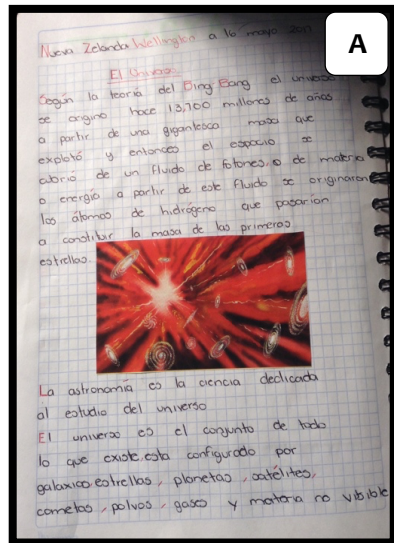 A
Nueva Zelanda Wellington a 16 mayo
El Universo.
Según la teoría del Bing Bang el universo
se origino hace 13,700 millones de años
a partir de una gigantesca masa que
explotó y entonces el espacio se
cubrió de un fluido de fotones, o de materia
o energía a partir de este fluido se originaron
los átomos de hidrógeno que pasarían
a constituir la masa de las primeras
estrellas.
La astronomía es la ciencia dedicada
al estudio del universo
El universo es el conjunto de todo
lo que existe, esta configurado por
galaxias, estrellas, planetas, satélites,
cometas, polvos, gases y materia no visible